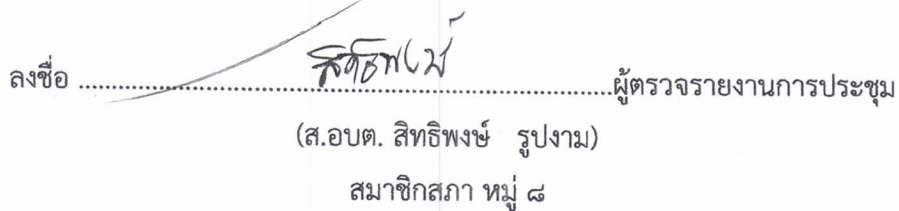 ลงชื่อ ........สิทธิพงษ์........ผู้ตรวจรายงานการประชุม
(ส.อบต. สิทธิพงษ์ รูปงาม)
สมาชิกสภา หมู่ ๘